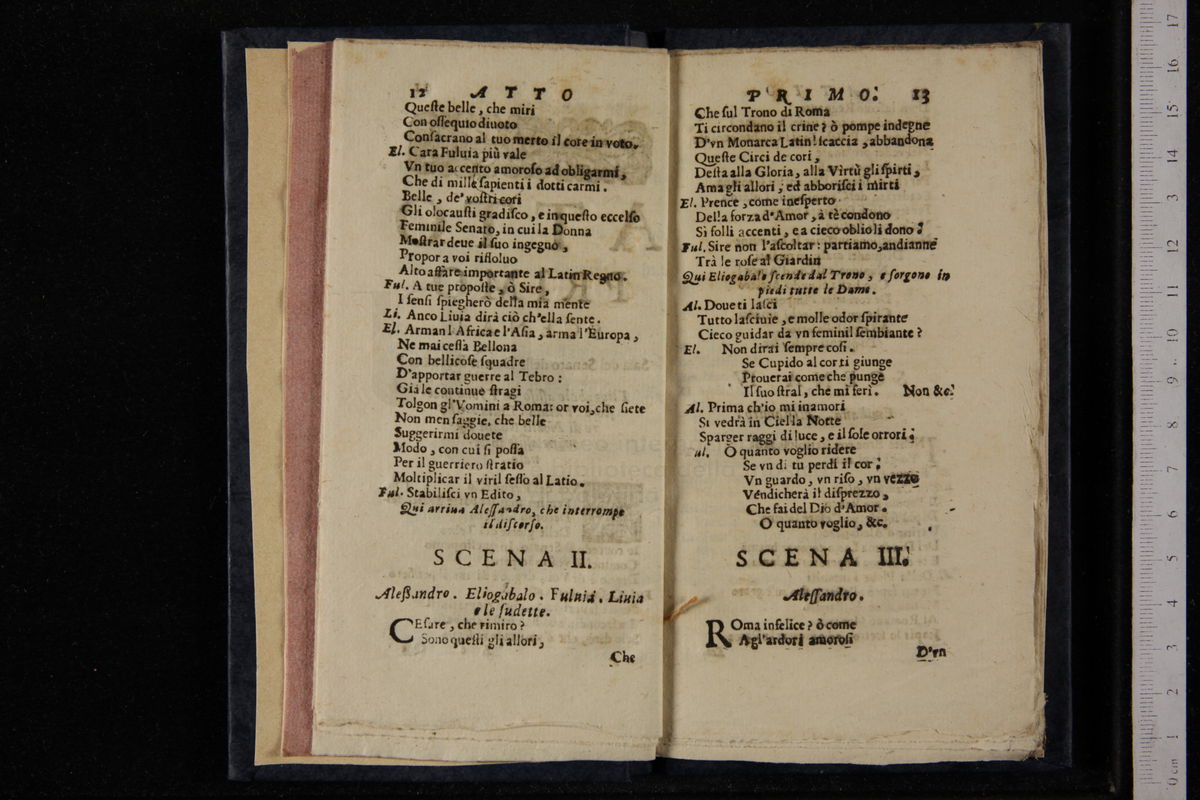 12 ATTO
Queſte belle, che miri
Con oſſequio diuoto
Conſacrano al tuo merto il core in voto.
El. Cara Fuluia più vale
Vn tuo accento amoroſo ad obligarmi,
Che di mille ſapienti i dotti carmi.
Belle, de' voſtri cori
Gli olocauſti gradiſco, e in queſto eccelſo
Feminile Senato, in cui la Donna
Moſtrar deue il ſuo ingegno,
Propor a voi riſſoluo
Alto affare importante al Latin Regno.
Ful. A tue propoſte, ò Sire,
I ſenſi ſpiegherò della mia mente
Li. Anco Liuia dirà ciò ch'ella ſente.
El. Arman l'Africa e l'Aſia, arma l'Europa,
Ne mai ceſſa Bellona
Con bellicoſe ſquadre
D'apportar guerre al Tebro:
Già le continue ſtragi
Tolgon gl'Vomini a Roma: or voi, che ſiete
Non men ſaggie, che belle
Suggerirmi douete
Modo, con cui ſi poſſa
Per il guerriero ſtratio
Moltiplicar il viril ſeſſo al Latio.
Ful. Stabiliſci vn Edito,
Qui arriua Aleſſandro, che interrompe
il diſcorſo.
SCENA II.
Aleßandro. Eliogabalo. Fuluia. Liuia
e le ſudette.
CEſare, che rimiro?
Sono queſti gli allori,
Che
PRIMO. 13
Che ſul Trono di Roma
Ti circondano il crine? ò pompe indegne
D'vn Monarca Latin! ſcaccia, abbandona
Queſte Circi de cori,
Deſta alla Gloria, alla Virtù gli ſpirti,
Ama gli allori, ed abboriſci i mirti
El. Prence, come ineſperto
Della forza d'Amor, à tè condono
Sì folli accenti, e a cieco oblio li dono.
Ful. Sire non l'aſcoltar: partiamo, andianne
Trà le roſe al Giardin
Qui Eliogabalo ſcende dal Trono, e ſorgono in
piedi tutte le Dame.
Al. Doue ti laſci
Tutto laſciuie, e molle odor ſpirante
Cieco guidar da vn feminil ſembiante?
El. Non dirai ſempre coſi.
Se Cupido al cor ti giunge
Prouerai come che punge
Il ſuo ſtral, che mi ferì. Non &c.
Al. Prima ch'io mi inamori
Si vedrà in Ciel la Notte
Sparger raggi di luce, e il ſole orrori.
ul. O quanto voglio ridere
Se vn dì tu perdi il cor.
Vn guardo, vn riſo, vn vezzo
Véndicherà il diſprezzo,
Che fai del Dio d'Amor.
O quanto voglio, &c.
SCENA III.
Aleſſandro.
ROma infelice? ò come
Agl'ardori amoroſi
D'vn